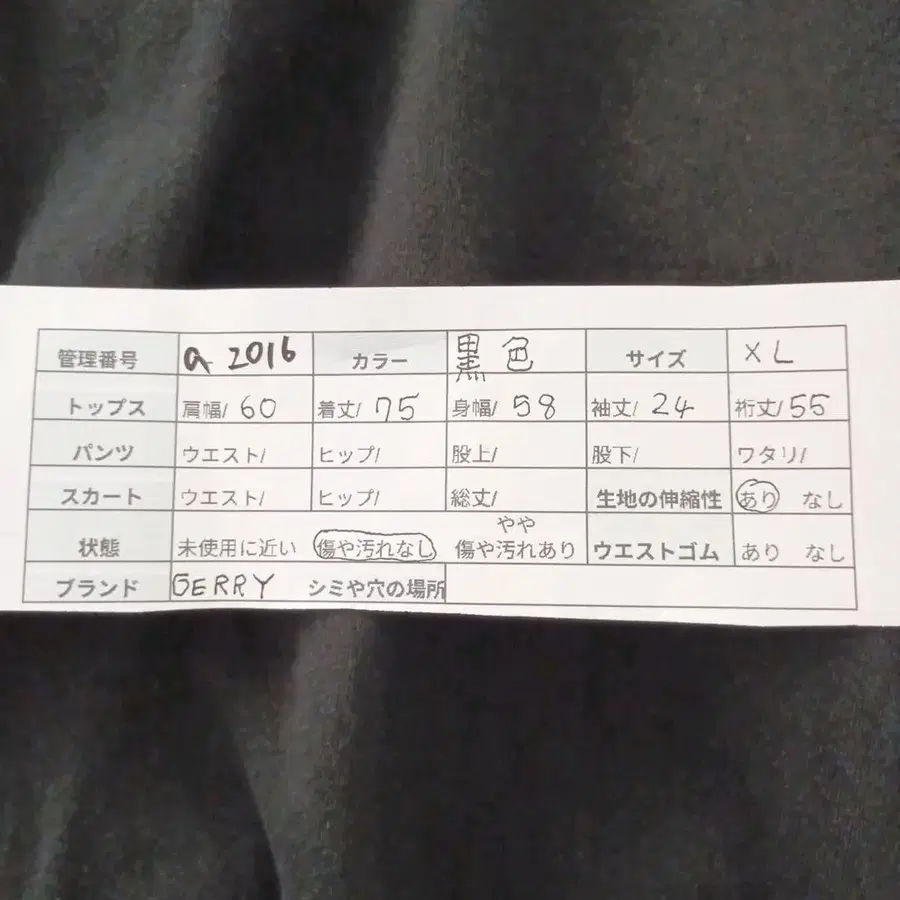 管理番号 a 2016 カラー 黒色 サイズ XL
トップス 肩幅/ 60 着丈/ 75 身幅/ 58 袖丈/ 24 裄丈/ 55
パンツ ウエスト/ ヒップ/ 股上/ 股下/ ワタリ/
スカート ウエスト/ ヒップ/ 総丈/ 生地の伸縮性 あり なし
状態 未使用に近い 傷や汚れなし やや傷や汚れあり ウエストゴム あり なし
ブランド GERRY シミや穴の場所